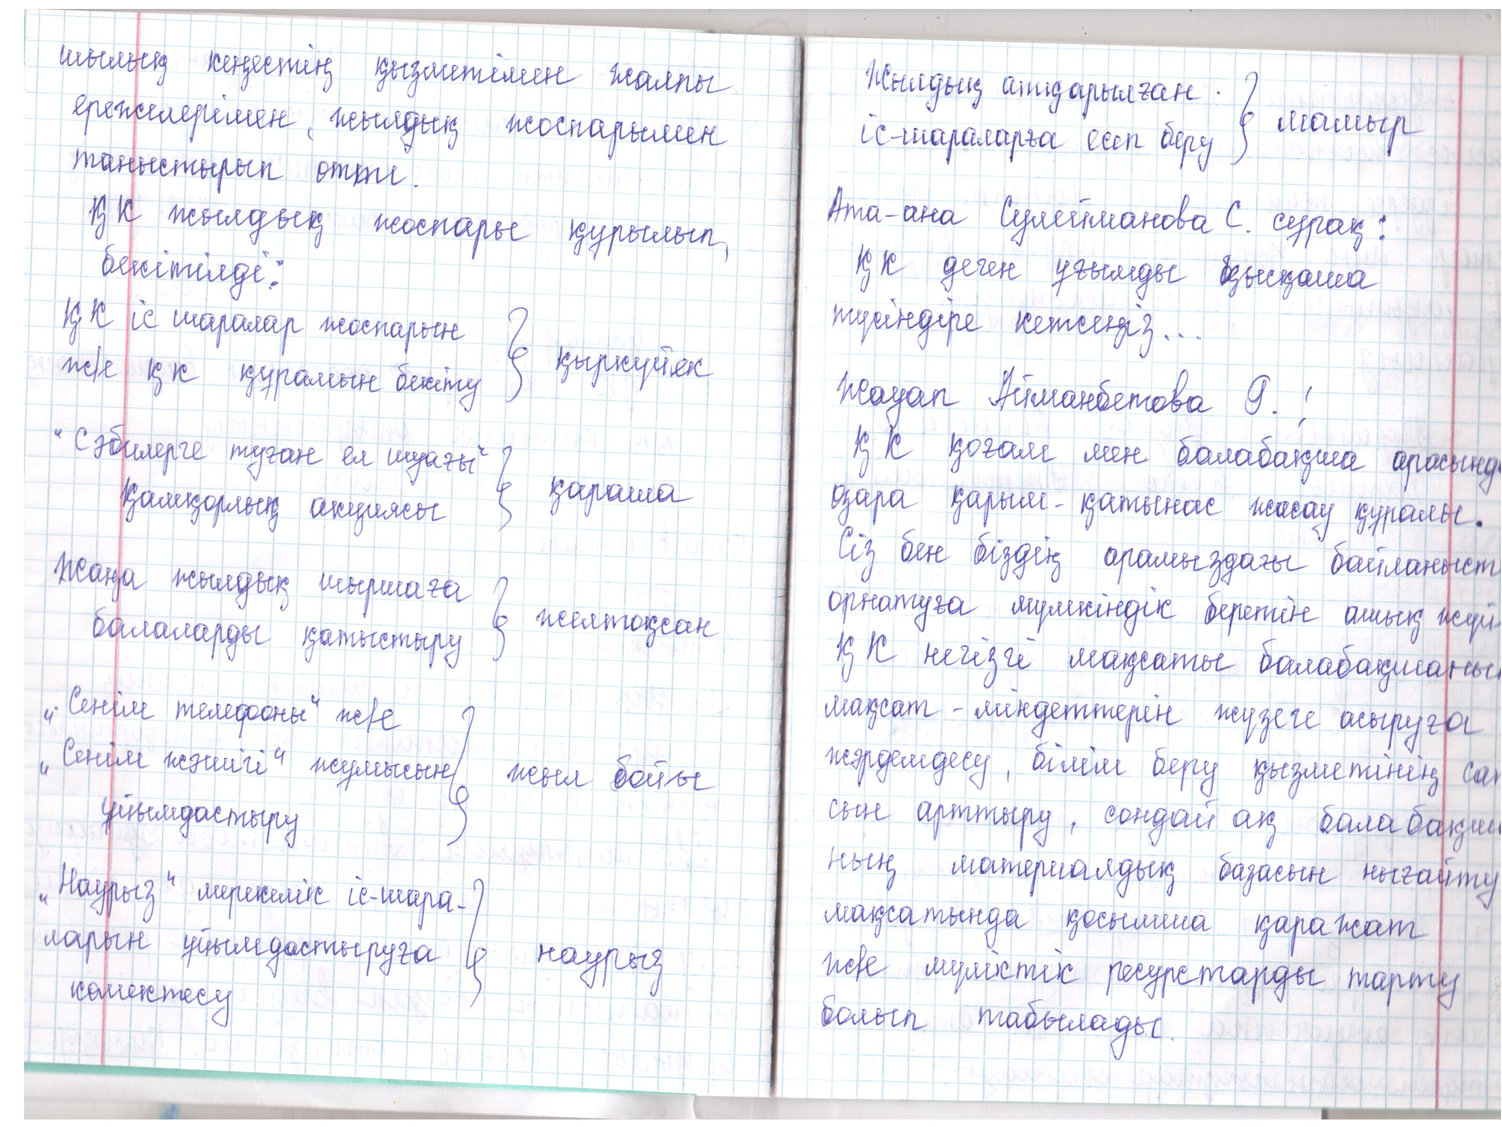 шылық кеңестің қызметімен жалпы
ережелерімен, жылдық жоспарымен
таныстырып өтті.
ҚК жылдық жоспары құрылып,
бекітілді:
ҚК іс шаралар жоспарын
ж/е ҚК құрамын бекіту } қыркүйек
"Сәбилерге туған ел шуағы"
қамқорлық акциясы } қараша
Жаңа жылдық шыршаға
балаларды қатыстыру } желтоқсан
"Сенім телефоны" ж/е
"Сенім жәшігі" жұмысын } жыл бойы
ұйымдастыру
"Наурыз" мерекелік іс-шара-
ларын ұйымдастыруға } наурыз
көмектесу
Жылдық атқарылған
іс-шараларға есеп беру } мамыр
Ата-ана Сулейманова С. сұрақ:
ҚК деген ұғымды қысқаша
түсіндіре кетсеңіз...
Жауап Айманбетова Г. :
ҚК қоғам мен балабақша арасында
өзара қарым-қатынас жасау құралы.
Сіз бен біздің арамыздағы байланыст
орнатуға мүмкіндік беретін ашық жүй
ҚК негізгі мақсаты балабақшаның
мақсат-міндеттерін жүзеге асыруға
жәрдемдесу, білім беру қызметінің сап
сын арттыру, сондай ақ балабақша
ның материалдық базасын нығайту
мақсатында қосымша қаражат
ж/е мүліктік ресурстарды тарту
болып табылады.